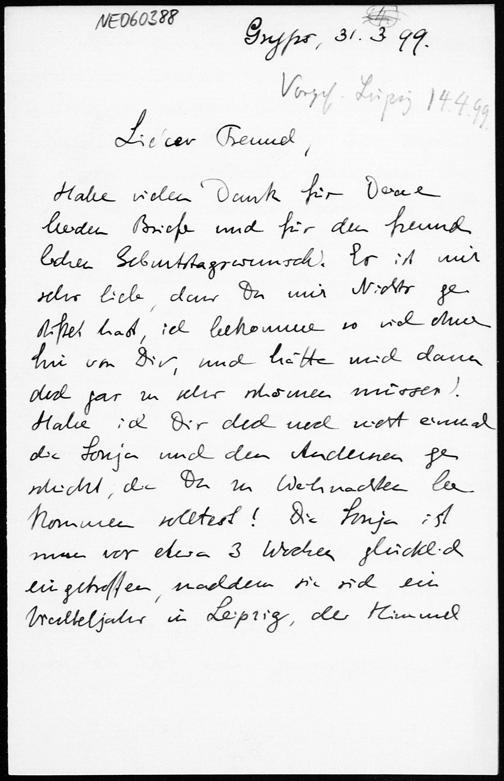 NE060388
Gryps, 31.3.99.
Vorgel. Leipzig 14.4.99.
Lieber Freund,
Habe vielen Dank für Deine
beiden Briefe und für den freund
lichen Geburtstagswunsch. Es ist mir
sehr lieb, dass Du mir Nichts ge
stiftet hast, ich bekomme so viel ohne
hin von Dir, und hätte mich dann
doch gar zu sehr schämen müssen!
Habe ich Dir doch noch nicht einmal
die Sonja und den Andersen ge
schickt, die Du zu Weihnachten be
kommen solltest! Die Sonja ist
nun vor etwa 3 Wochen glücklich
eingetroffen, nachdem sie sich ein
Vierteljahr in Leipzig, der Himmel